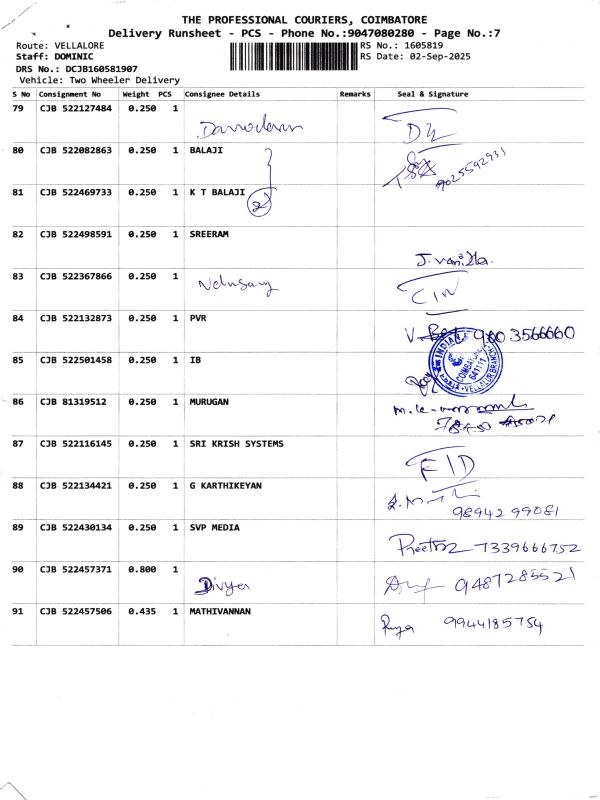 THE PROFESSIONAL COURIERS, COIMBATORE
Delivery Runsheet - PCS - Phone No.:9047080280 - Page No.:7
Route: VELLALORE RS No.: 1605819
Staff: DOMINIC RS Date: 02-Sep-2025
DRS No.: DCJB160581907
Vehicle: Two Wheeler Delivery
S No Consignment No Weight PCS Consignee Details Remarks Seal & Signature
79 CJB 522127484 0.250 1
Damodaran
80 CJB 522082863 0.250 1 BALAJI
9025592931
81 CJB 522469733 0.250 1 K T BALAJI
2
82 CJB 522498591 0.250 1 SREERAM
J. vanitha.
83 CJB 522367866 0.250 1
84 CJB 522132873 0.250 1 PVR
9003566660
85 CJB 522501458 0.250 1 IB
COIMBATORE
641111
VELLALUR BRANCH
86 CJB 81319512 0.250 1 MURUGAN
87 CJB 522116145 0.250 1 SRI KRISH SYSTEMS
88 CJB 522134421 0.250 1 G KARTHIKEYAN
98942 99081
89 CJB 522430134 0.250 1 SVP MEDIA
7339666752
90 CJB 522457371 0.800 1
Divya 9487285521
91 CJB 522457506 0.435 1 MATHIVANNAN
9944185754